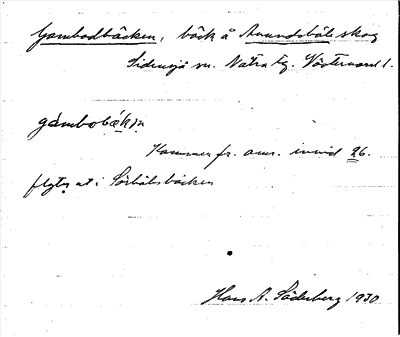 Gambodbäcken, bäck å Anundsböle skog
Sidensjö sn. Nätra tg. Västernorrl.
gámbobäkn
Kommer fr. omr. invid 26.
flyter ut i Sörbölsbäcken
Hans A. Söderberg 1930